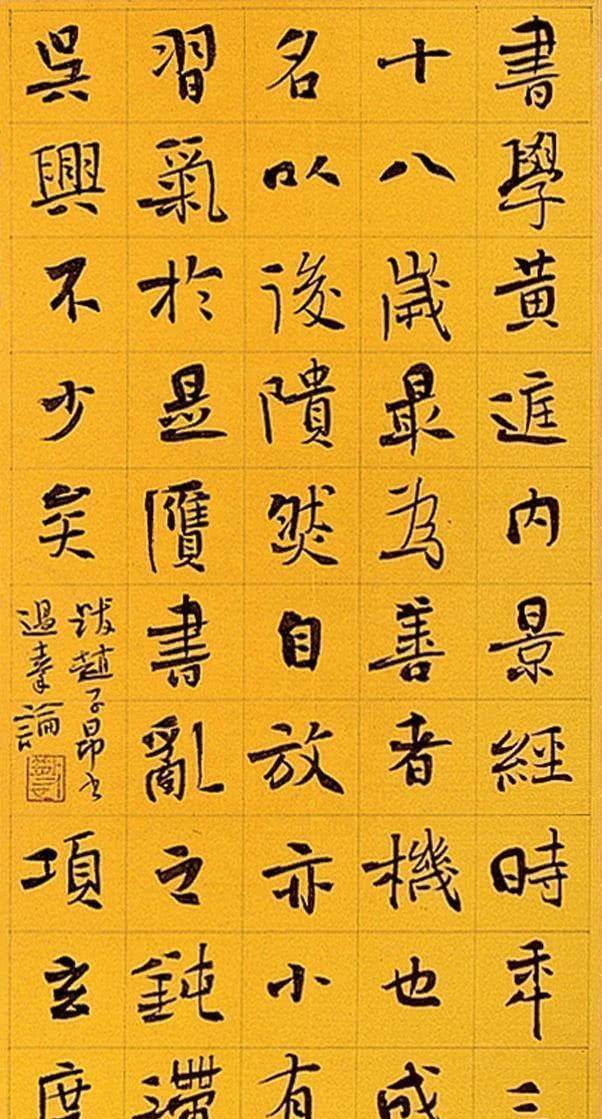 書學黃庭内景經時年三
十八歲最為善者機也成
名以後隤然自放亦小有
習氣於是贋書亂之鈍滯
吳興不少矣
跋趙子昂書
過秦論
項玄度